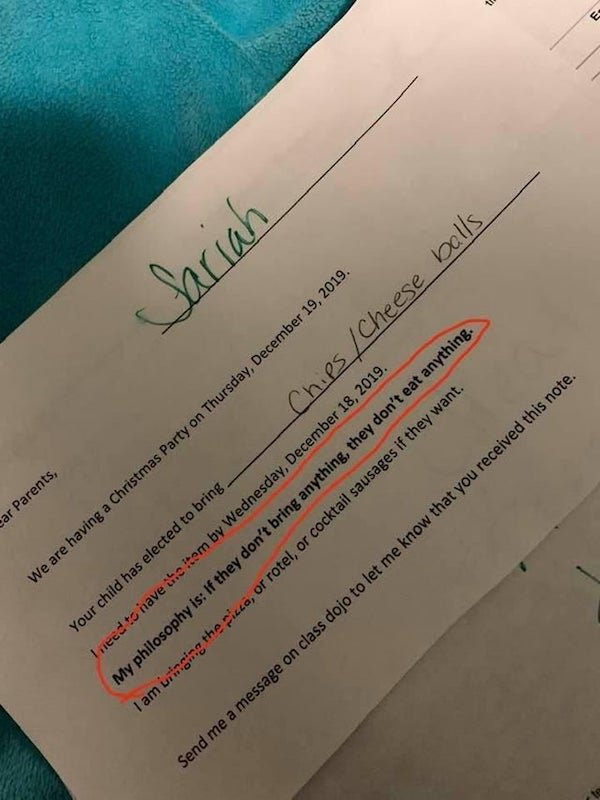 Sariah
ear Parents,
We are having a Christmas Party on Thursday, December 19, 2019.
Your child has elected to bring Chips/Cheese balls
I need to have the item by Wednesday, December 18, 2019.
My philosophy is: If they don't bring anything, they don't eat anything.
I am bringing the pizza, or rotel, or cocktail sausages if they want.
Send me a message on class dojo to let me know that you received this note.